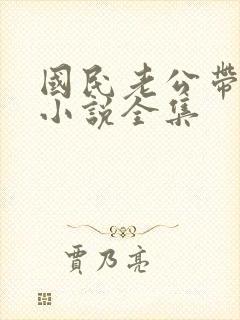 國民老公帶
小說全集
賈乃亮